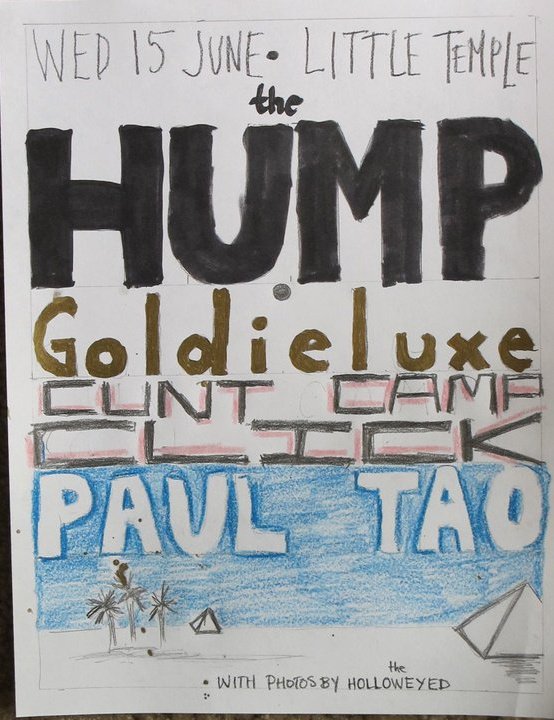 WED 15 JUNE • LITTLE TEMPLE
the
HUMP
Goldieluxe
CLINT CAMP
CLICK
PAUL TAO
• WITH PHOTOS BY the HOLLOWEYED